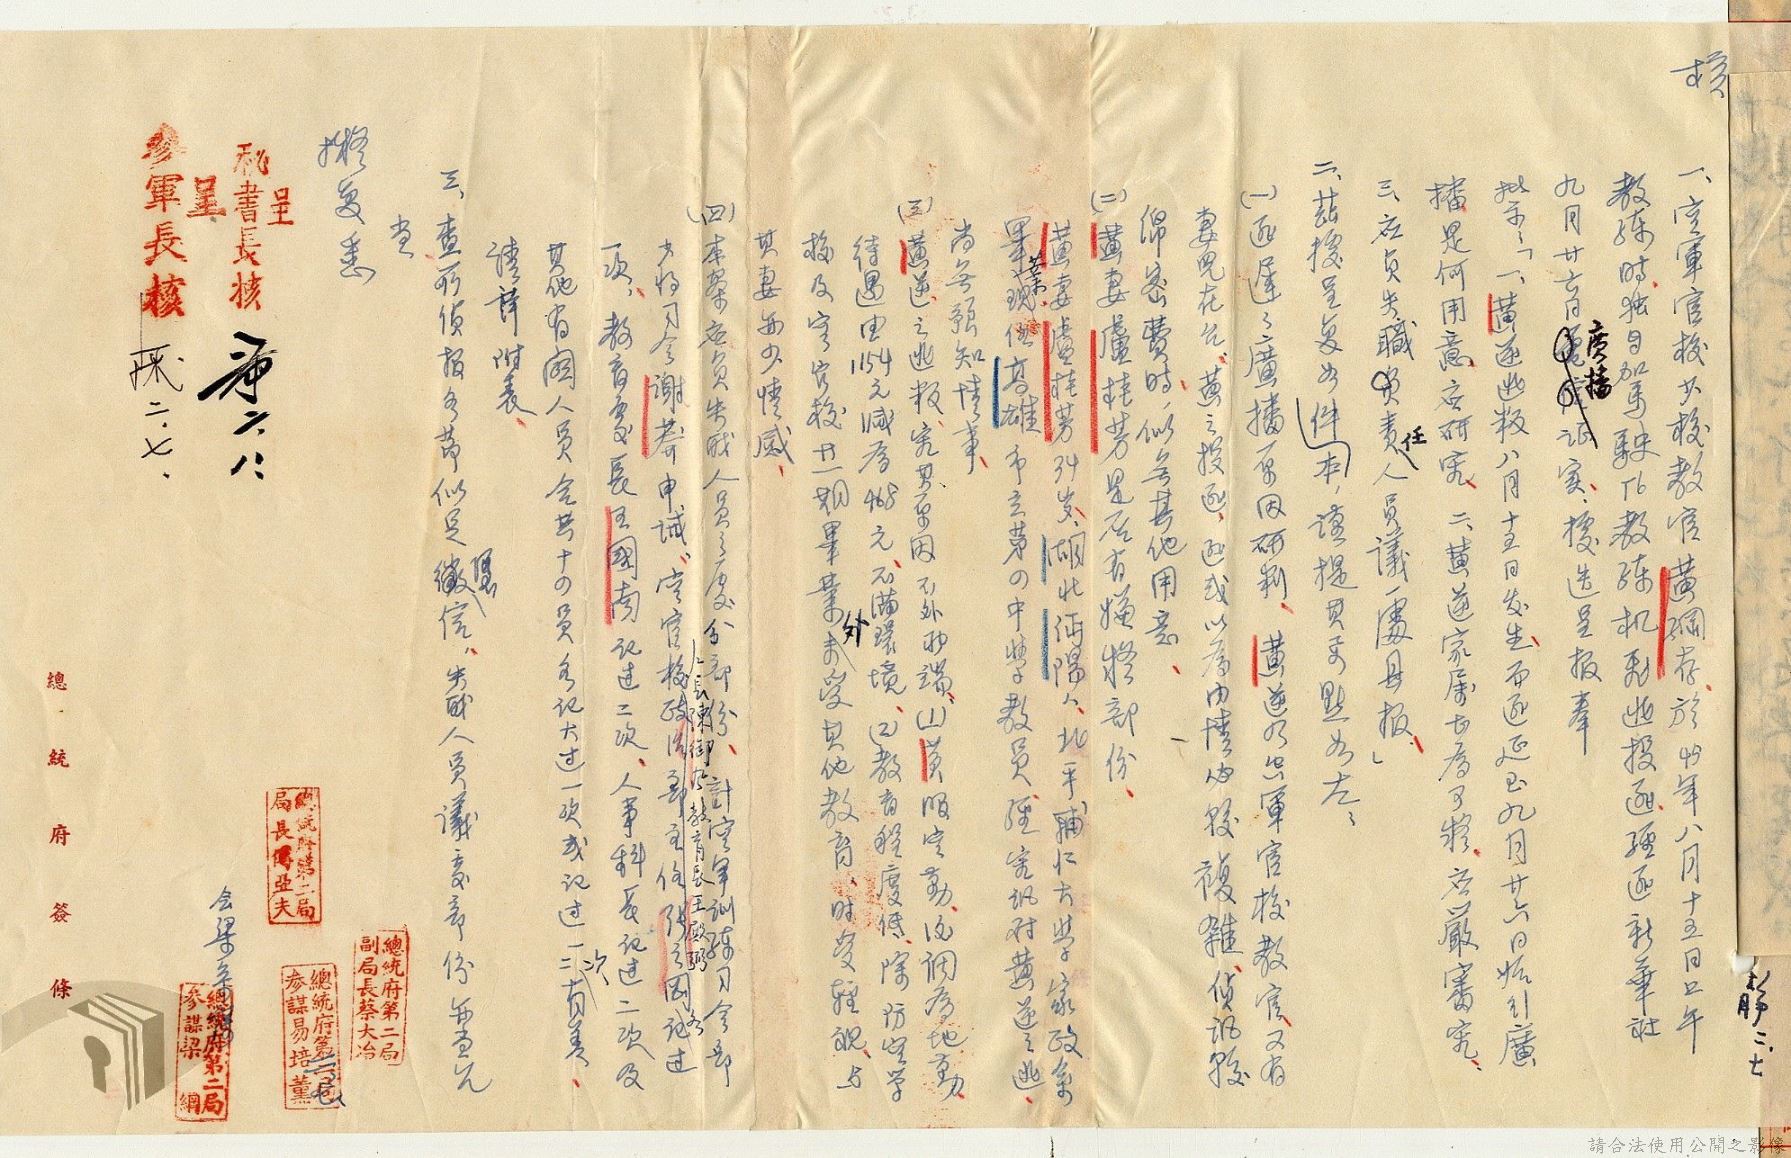 核
一、空軍官校少校教官黃綱存於45年八月十五日上午
教練時独自加駕駛T6教練机乙架逃投匪經匪新華社
九月廿六日廣播証实、據迭呈报奉
批示:「一、黃逆逃叛八月十五日发生、而匪延至九月廿六日始引廣
播是何用意、应研究、二、黃逆家屬如有可疑、应嚴審究、
三、应負失職責任人員議處具报、」
二、茲據呈复如件(本)、謹提具要點如左:
(一)匪遲遲廣播原因研判、黃逆乃空軍官校教官又有
妻兒在台、黃之投匪、匪或以為內情较複雜、偵訊较
綿密費時、似無其他用意、
(二)黃妻盧桂芳是否有嫌疑部份、
黃妻盧桂芳34岁、湖北沔陽人、北平輔仁大學家政系
畢業、現任高雄市立第四中學教員、經究訊对黃逆之逃
尚無預知情事、
(三)黃逆之逃叛、究其原因不外兩端、(1)黃服空勤、后調為地勤
待遇由1154元減為468元、不滿環境、(2)教育程度低、除防空学
校及空官校廿一期畢業外未受其他教育、時受輕視、与
其妻無少情感、
(四)本案应負失職人員之處分部份、計空軍訓練司令部
少將司令謝莽申誡、空官校政治部主任張之固記过
校長陳御風教育長王殿弼各
一次、教育處長王國南記过二次、人事科長記过二次及
其他有関人員合共十四員各記大过一次或記过一二次有差、
請詳附表、
三、查所偵报各節似足徵信、失職人員議處部份無意見
擬复悉
查
呈
秘書長核
呈
參軍長核
二、八
二、七、
二、七
總統府簽條
總統府第二局
局長傅亞夫
總統府第二局
副局長蔡大冶
總統府第二局
參謀易培薰
總統府第二局
參謀梁綱
會梁
請合法使用公開之影像